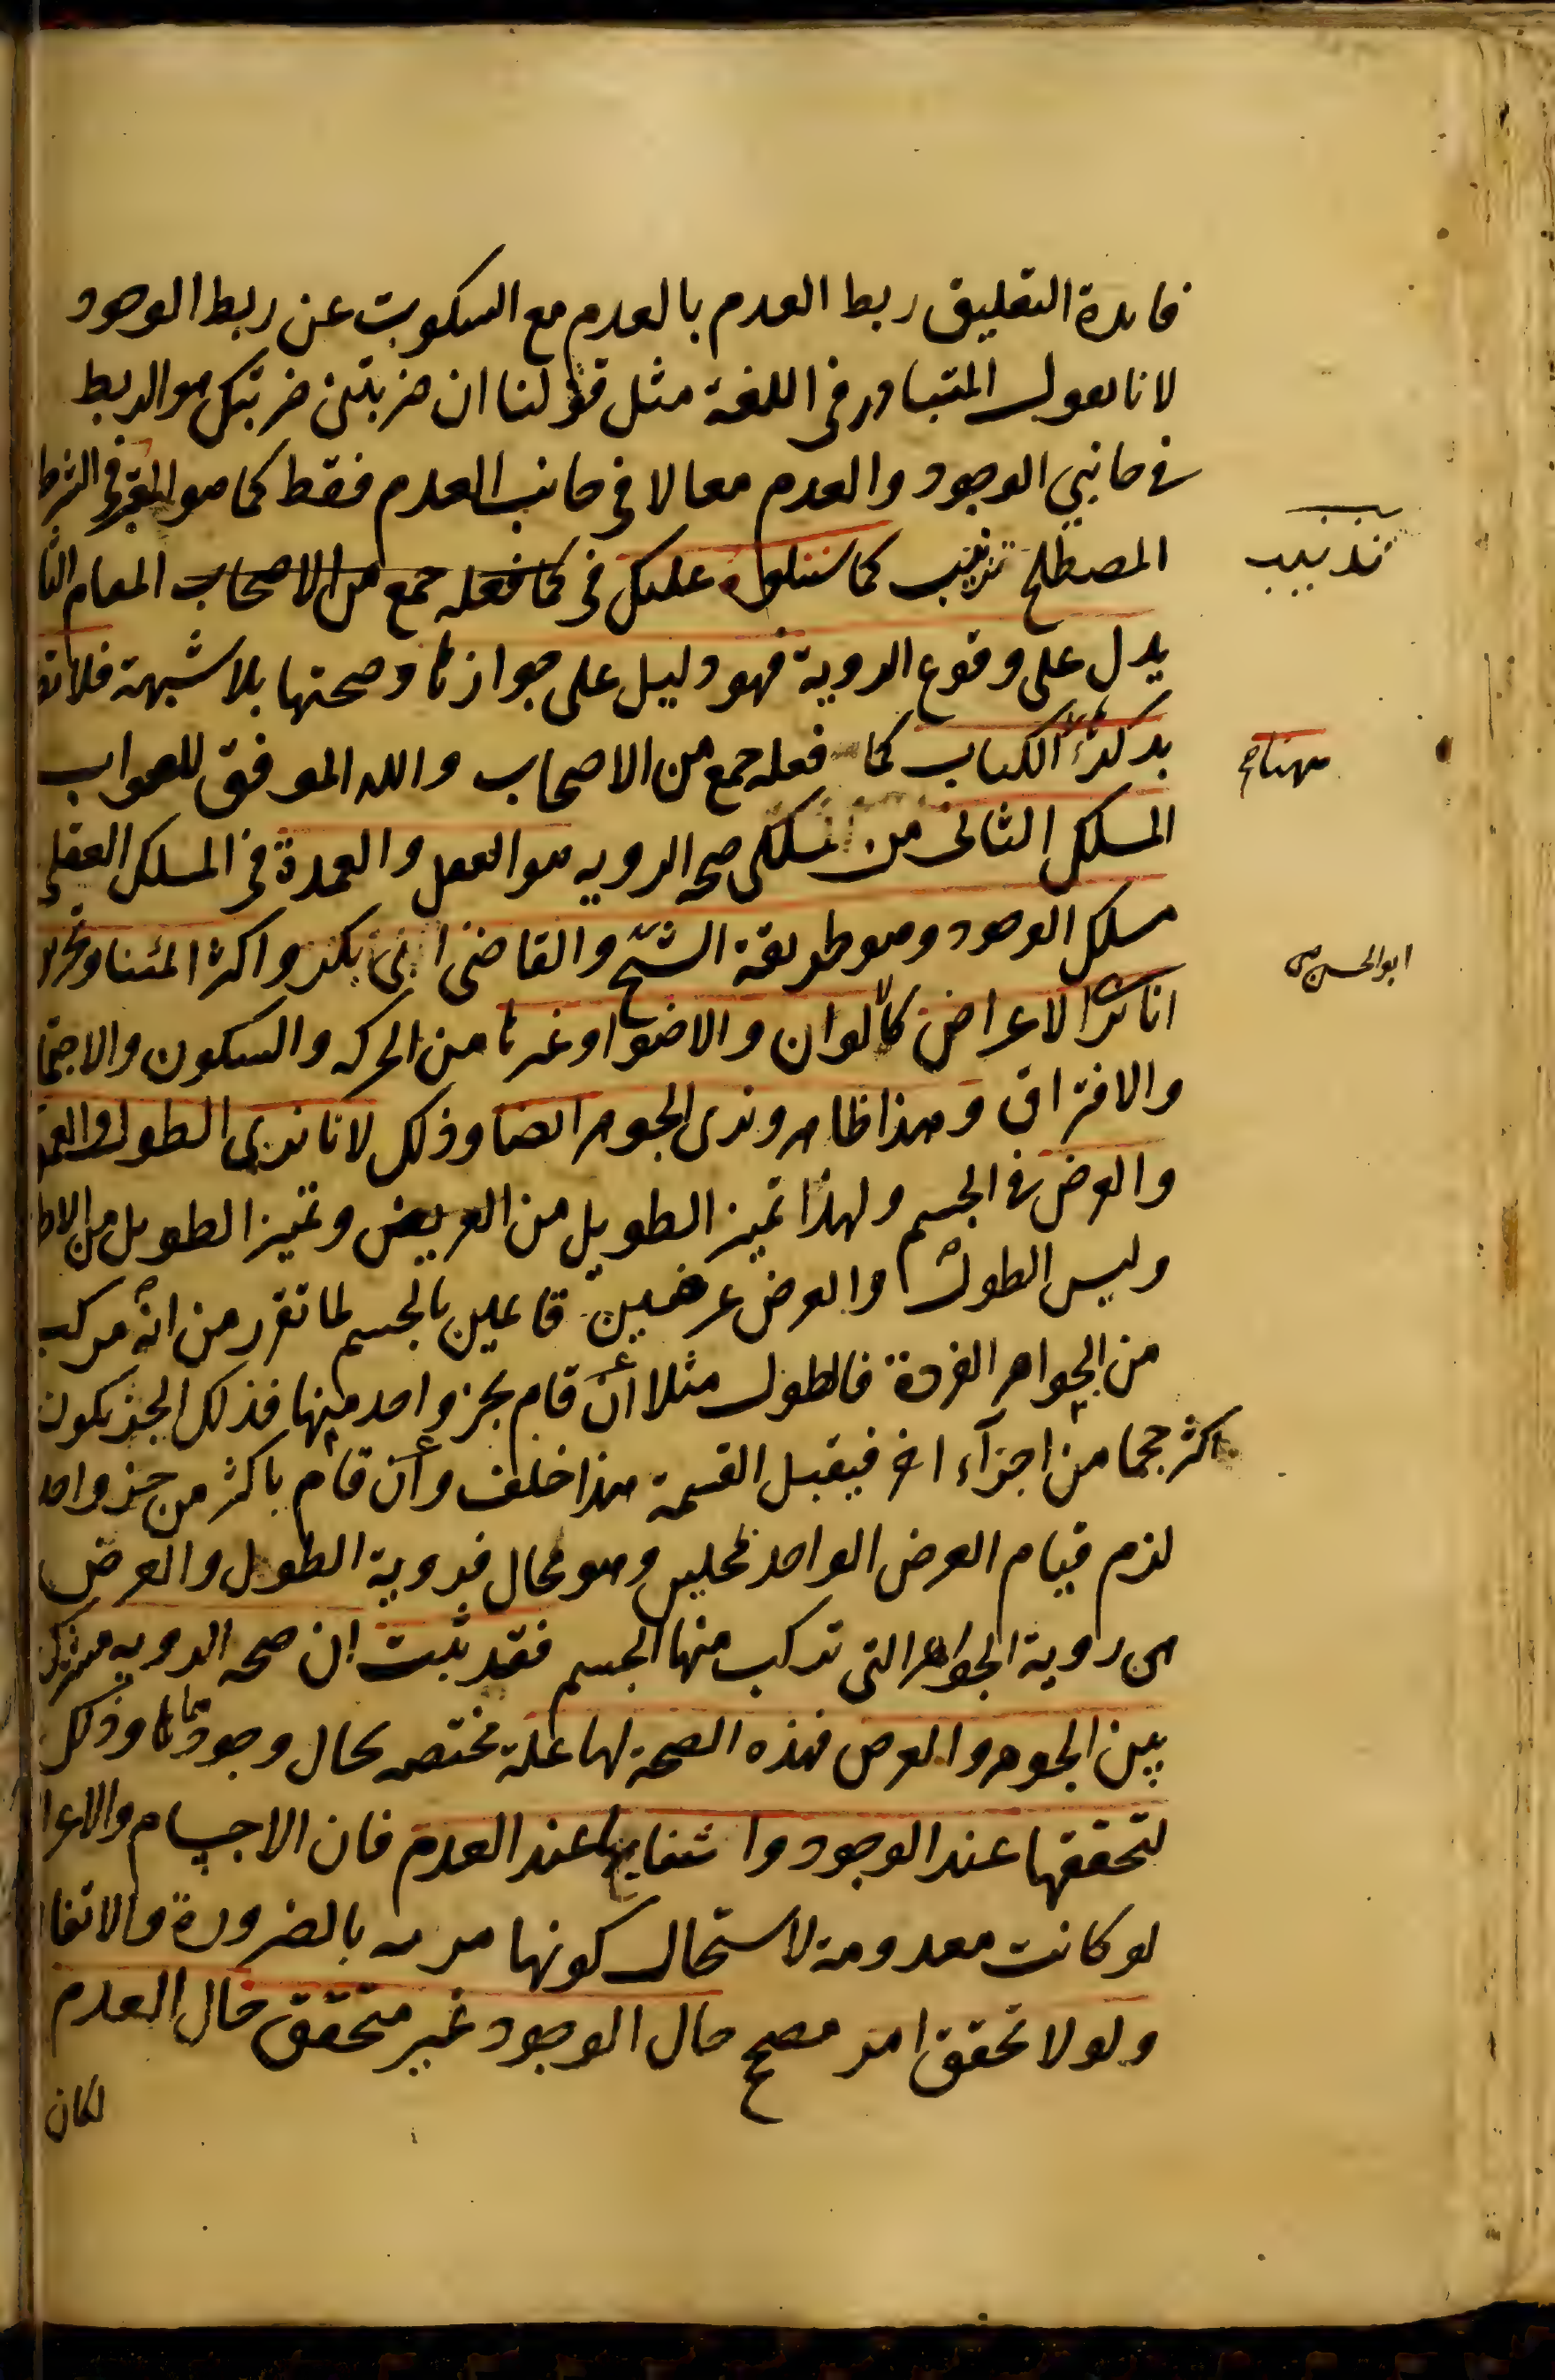 فايدة التعليق ربط العدم بالعدم مع السكوت عن ربط الوجود
لانا نقول المتبادر في اللغة مثل قولنا ان ضربتنى ضربتك هو الربط
في جانبي الوجود والعدم معا لا في جانب العدم فقط كما هو المعتبر في الشرط
المصطلح تذنيب كما سنتلوه عليك في كما فعله جمع من الاصحاب المقام الثا
تذنيب
يدل على وقوع الروية فهو دليل على جوازها وصحتها بلا شبهة فلا
بذكر الكتاب كما فعله جمع من الاصحاب والله الموفق للصواب
ههنا صح
المسلك الثاني من مسلكي صحة الروية هو العقل والعمدة في المسلك العقلي
مسلك الوجود وهو طريقة الشيخ والقاضي ابي بكر واكثر ائمتنا وتحريره
ابو الحسن صح
انا نرى الاعراض كالالوان والاضواء وغيرها من الحركة والسكون والاجتما
والافتراق وهذا ظاهر ونرى الجوهر ايضا وذلك لانا نرى الطول والعمق
والعرض في الجسم ولهذا نميز الطويل من العريض ونميز الطويل من الاط
وليس الطول والعرض عرضين قائمين بالجسم لما تقرر من انه مركب
من الجواهر الفردة فالطول مثلا ان قام بجزء واحد منها فذلك الجزء يكون
اكثر حجما من اجزآء اخر فيقبل القسمة هذا خلف وان قام باكثر من جزء واحد
لزم قيام العرض الواحد بمحلين وهو محال فروية الطول والعرض
هي روية الجواهر التي تركب منها الجسم فقد ثبت ان صحة الروية مشتركة
بين الجوهر والعرض فهذه الصحة لها علة مختصة بحال وجودهما وذلك
لتحققها عند الوجود وانتفايها عند العدم فان الاجسام والاعرا
لو كانت معدومة لاستحال كونها مرئية بالضرورة والاتفا
ولولا تحقق امر مصحح حال الوجود غير متحقق حال العدم
لكان